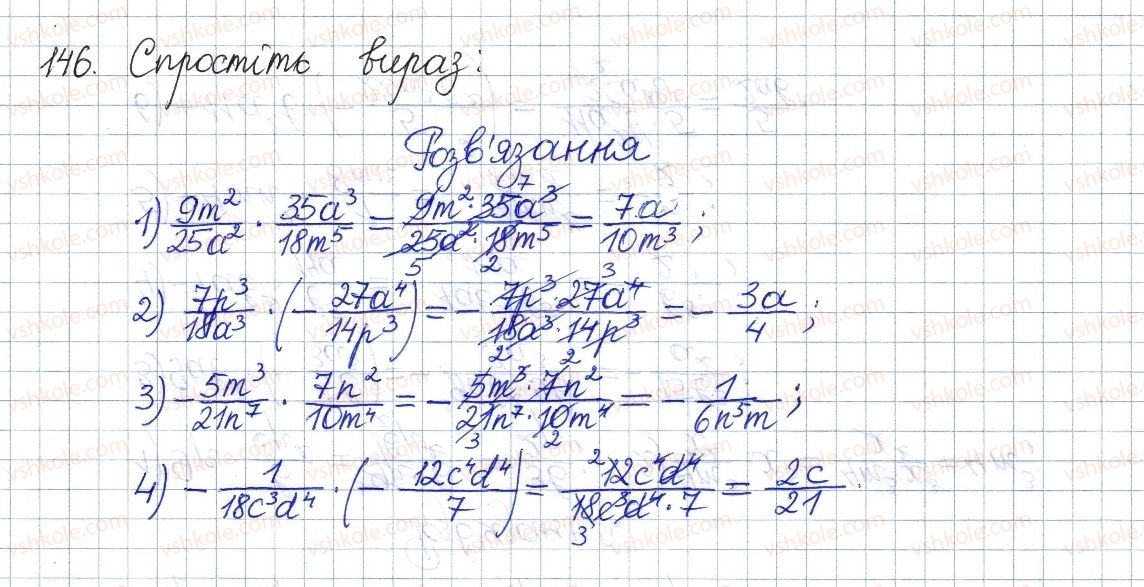 146. Спростіть вираз:
Розв'язання
1) 9m²/25a² · 35a³/18m⁵ = 9m²·35a³/25a²·18m⁵ = 7a/10m³ ;
2) 7p³/18a³ · (- 27a⁴/14p³) = - 7p³·27a⁴/18a³·14p³ = - 3a/4 ;
3) - 5m³/21n⁷ · 7n²/10m⁴ = - 5m³·7n²/21n⁷·10m⁴ = - 1/6n⁵m ;
4) - 1/18c³d⁴ · (- 12c⁴d⁴/7) = 12c⁴d⁴/18c³d⁴·7 = 2c/21 .